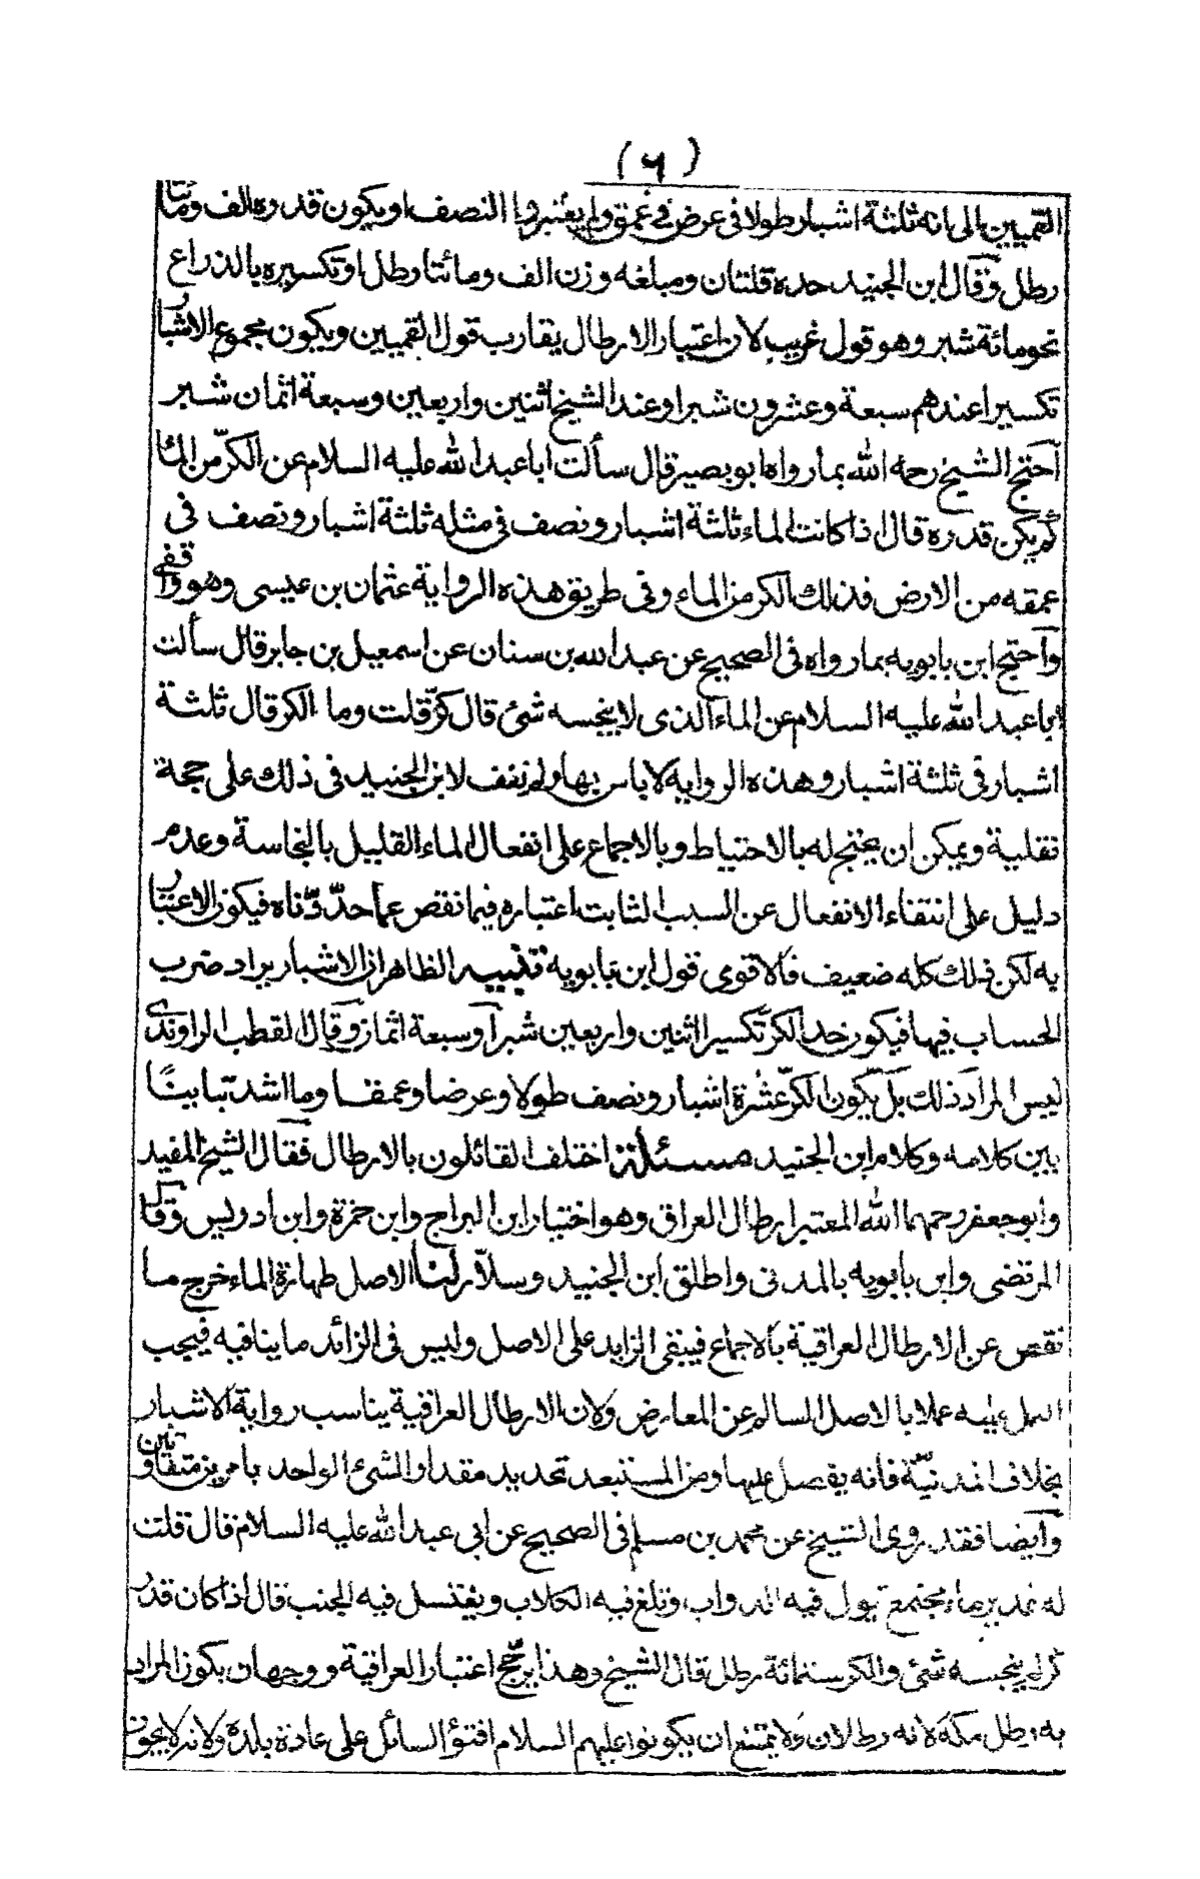 (٦)
القميين الى انه ثلثة اشبار طولا فى عرض فى عمق ولم يعتبروا النصف او يكون قدره الف ومائتا
رطل وقال ابن الجنيد حده قلتان ومبلغه وزن الف ومائتا رطل او تكسيره بالذراع
نحو مائة شبر وهو قول غريب لان اعتبار الارطال يقارب قول القميين ويكون مجموع الاشبار
تكسيرا عندهم سبعة وعشرون شبرا وعند الشيخ اثنين واربعين وسبعة اثمان شبر
احتج الشيخ رحمه الله بما رواه ابو بصير قال سألت ابا عبد الله عليه السلام عن الكر من الماء
كم يكن قدره قال اذا كانت الماء ثلثة اشبار ونصف فى مثله ثلثة اشبار ونصف فى
عمقه من الارض فذلك الكر من الماء وفى طريق هذه الرواية عثمان بن عيسى وهو واقفى
واحتج ابن بابويه بما رواه فى الصحيح عن عبد الله بن سنان عن اسمعيل بن جابر قال سألت
ابا عبد الله عليه السلام عن الماء الذى لا ينجسه شئ قال كرّ قلت وما الكر قال ثلثة
اشبار فى ثلثة اشبار وهذه الرواية لا باس بها ولم نقف لابن الجنيد فى ذلك على حجة
نقلية ويمكن ان يحتج له بالاحتياط وبالاجماع على انفعال الماء القليل بالنجاسة وعدم
دليل على انتفاء الانفعال عن السبب الثابت اعتباره فيما نقص عما حدّدناه فيكون الاعتبار
به لكن ذلك كله ضعيف فالاقوى قول ابن بابويه تنبيه الظاهر ان الاشبار يراد ضرب
الحساب فيها فيكون حد الكر تكسيرا اثنين واربعين شبرا وسبعة اثمان وقال القطب الراوندى
ليس المراد ذلك بل يكون الكرّ عشرة اشبار ونصف طولا وعرضا وعمقا وما اشد تباينًا
بين كلامه وكلام ابن الجنيد مسئلة اختلف القائلون بالارطال فقال الشيخ المفيد
وابو جعفر رحمهما الله المعتبر ارطال العراق وهو اختيار ابن البراج وابن حمزة وابن ادريس وقال
المرتضى وابن بابويه بالمدنى واطلق ابن الجنيد وسلّار لنا الاصل طهارة الماء خرج ما
نقص عن الارطال العراقية بالاجماع فيبقى الزايد على الاصل وليس فى الزائد ما ينافيه فيجب
العمل عليه عملا بالاصل السالم عن المعارض ولان الارطال العراقية يناسب رواية الاشبار
بخلاف المدنيّة فانه يفصل عليها ومن المستبعد تحديد مقدار الشئ الواحد بامرين متفاوتين
وايضا فقد روى الشيخ عن محمد بن مسلم فى الصحيح عن ابى عبد الله عليه السلام قال قلت
له غدير ماء مجتمع تبول فيه الدواب وتلغ فيه الكلاب ويغتسل فيه الجنب قال اذا كان قدر
كر لم ينجسه شئ والكر ستمائة رطل قال الشيخ وهذا يرجح اعتبار العراقية ووجهه ان يكون المراد
به رطل مكة لانه رطلان ولا يمتنع ان يكونوا عليهم السلام افتوا السائل على عادة بلده ولانه لا يجوز